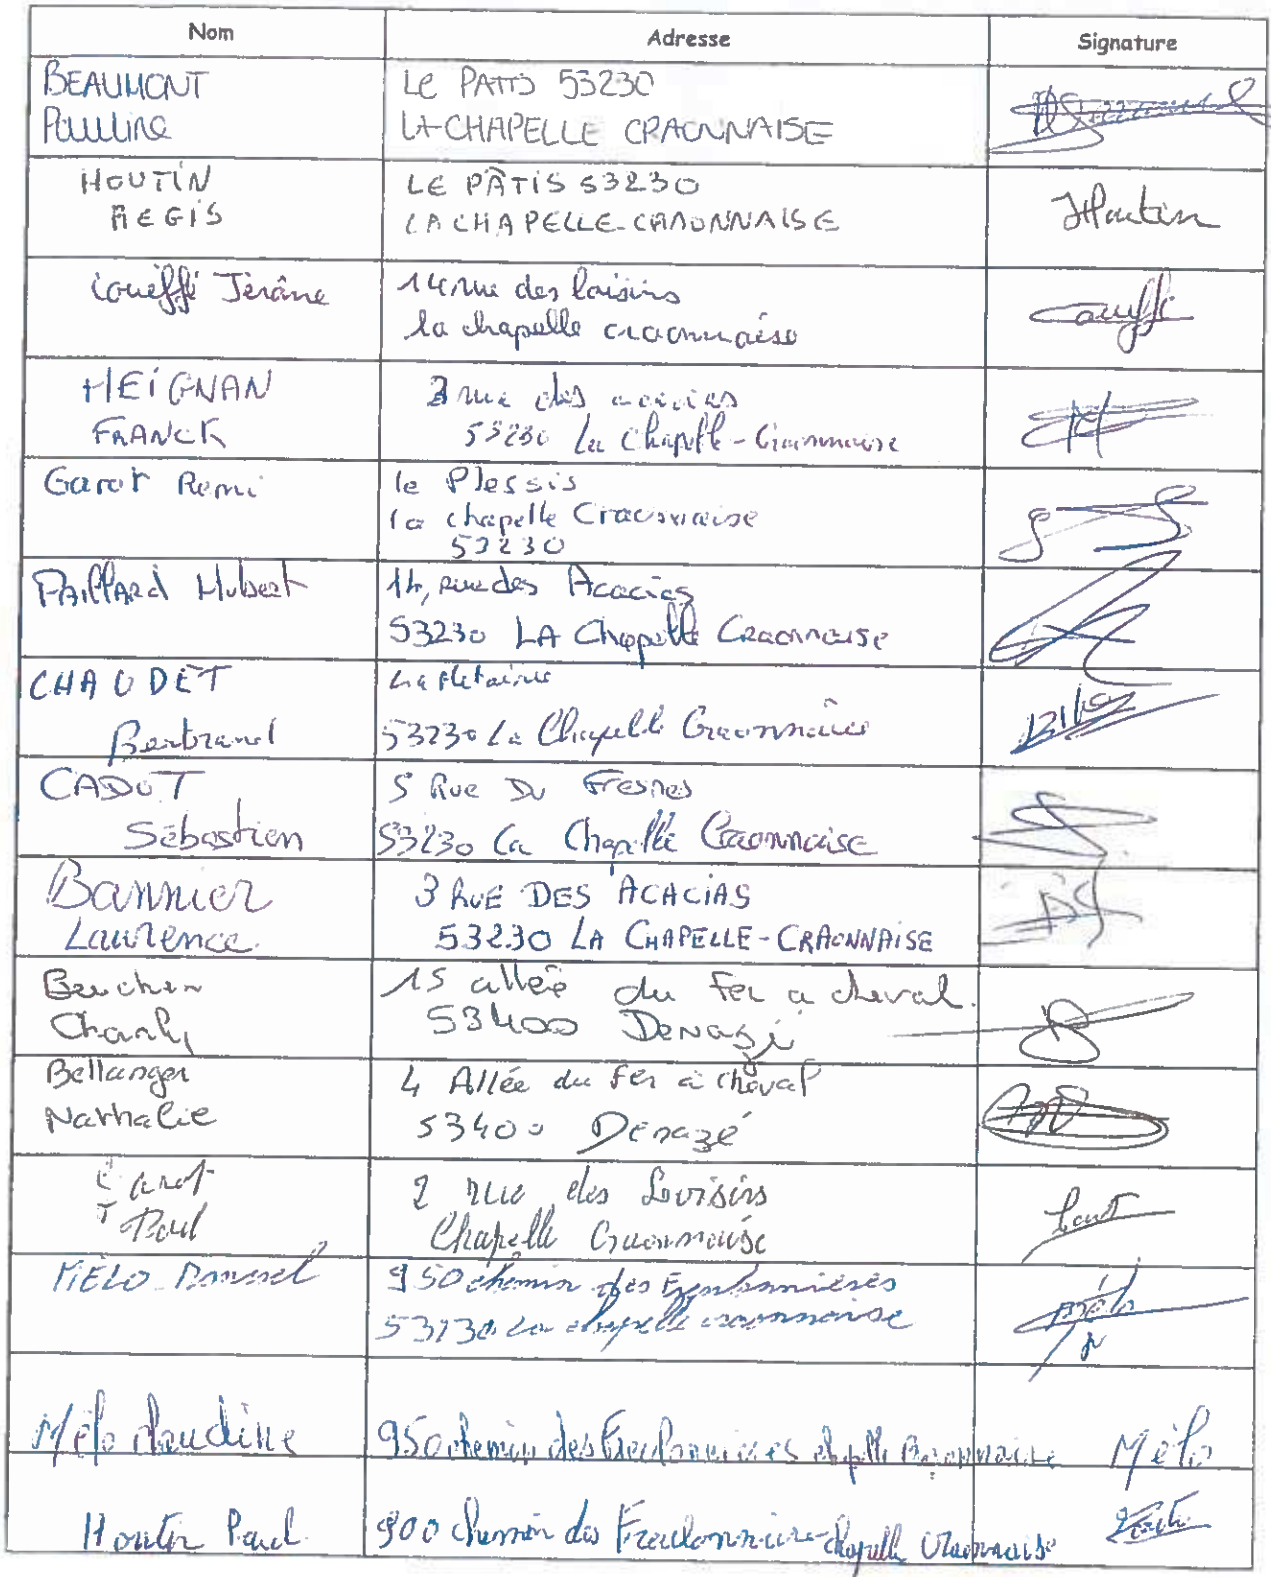 Nom Adresse Signature
BEAUMONT
Pauline
Le PATIS 53230
LA CHAPELLE CRAONNAISE
HOUTIN
REGIS
LE PÂTIS 53230
LA CHAPELLE-CRAONNAISE
Houtin
Coueffé Jérôme
14 rue des loisirs
la chapelle craonnaise
Coueffé
HEIGNAN
FRANCK
3 rue des acacias
53230 La Chapelle-Craonnaise
Garot Remi
le Plessis
la chapelle Craonnaise
53230
PAillARd Hubert
14, rue des Acacias
53230 LA Chapelle Craonnaise
CHAUDET
Bertrand
53230 La Chapelle Craonnaise
CADOT
Sébastien
5 Rue Du Fresnes
53230 La Chapelle Craonnaise
Bannier
Laurence
3 RUE DES ACACIAS
53230 LA CHAPELLE-CRAONNAISE
Charly
15 allée du Fer a cheval.
53400 Denazé
Bellanger
Nathalie
4 Allée du Fer à cheval
53400 Denazé
Garot
Paul
2 rue des Loisirs
Chapelle Craonnaise
MÉLO
950 chemin des
53230 La chapelle craonnaise
Mélo
Mélo Claudine
950 chemin des chpelle Craonnaise
Mélo
Houtin Paul
900 chemin des Chapelle Craonnaise